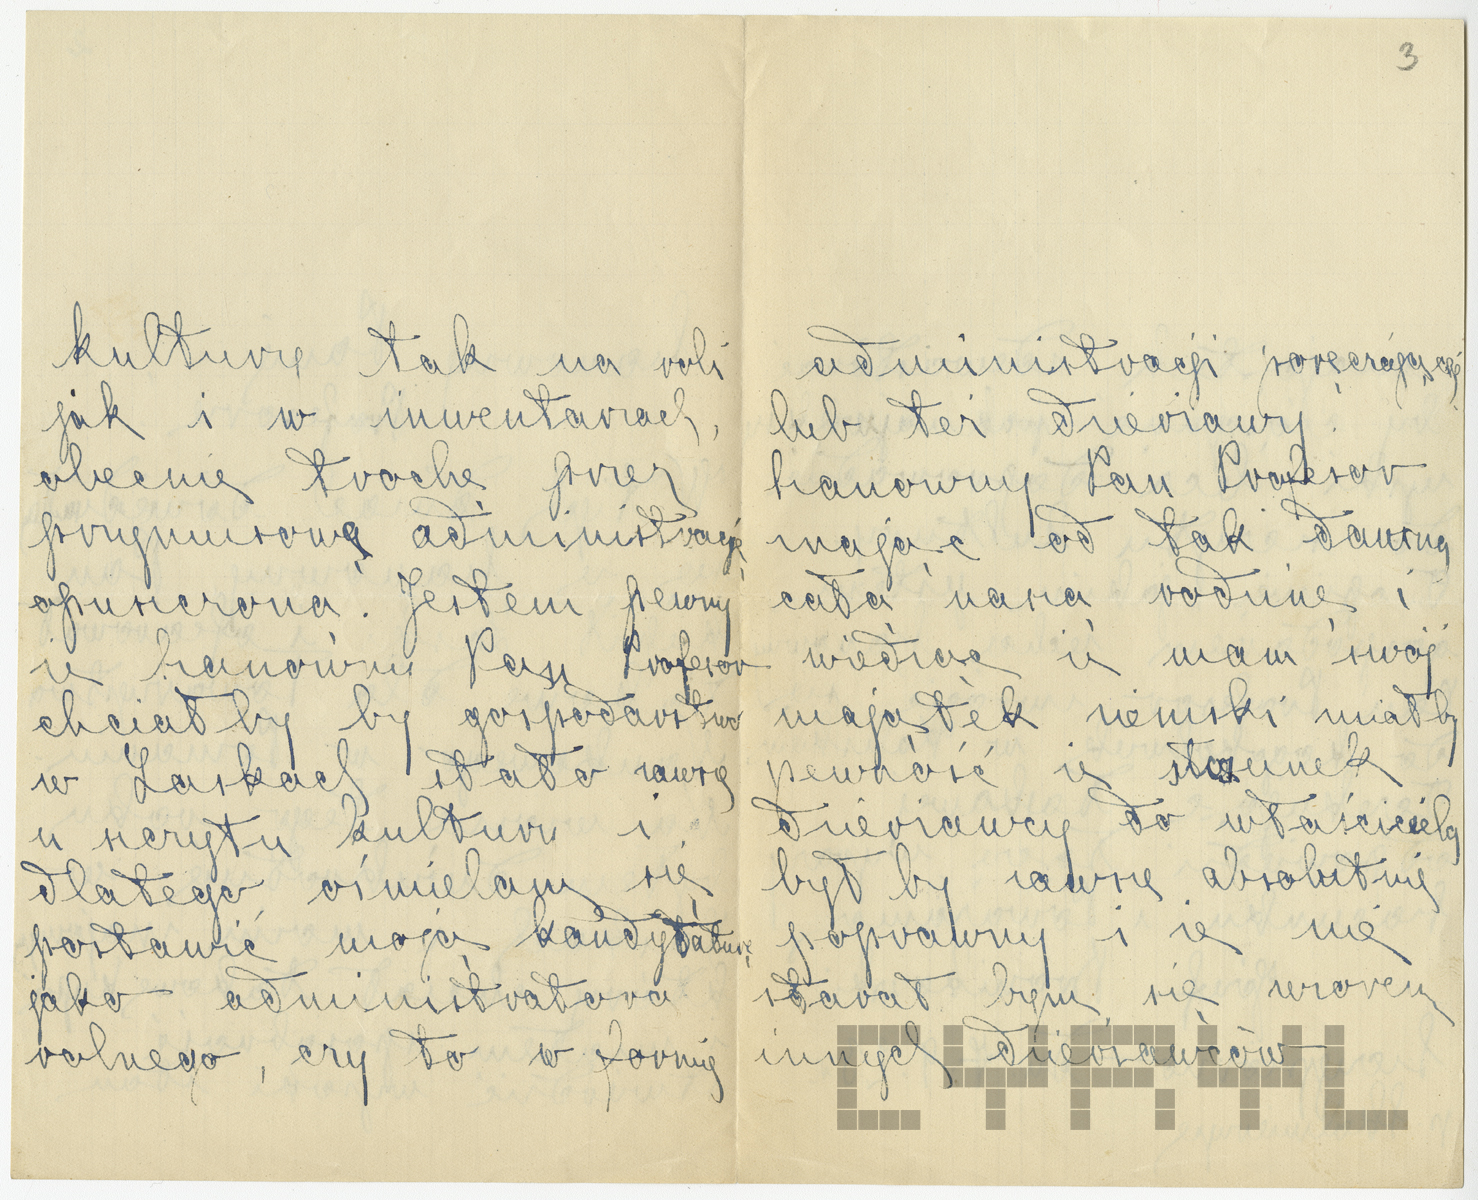 3
kulturę tak na roli
jak i w inwentarzach,
obecnie trochę przez
przymusową administrację
opuszczona. Jestem pewny
że Szanowny Pan Profesor
chciałby by gospodarstwo
w Laskach stało zawsze
u szczytu kultury i
dlatego ośmielam się
postawić moją kandydaturę
jako administratora
rolnego, czy to w formie
administracji poręczającej
lub też dzierżawy.
Szanowny Pan Profesor
znając od tak dawna
całą naszą rodzinę i
wiedząc iż mam swój
majątek ziemski miałby
pewność że stosunek
dzierżawcy do właściciela
był by zawsze absolutnie
poprawny i że nie
starał bym się wzorem
innych dzierżawców
CYRYL